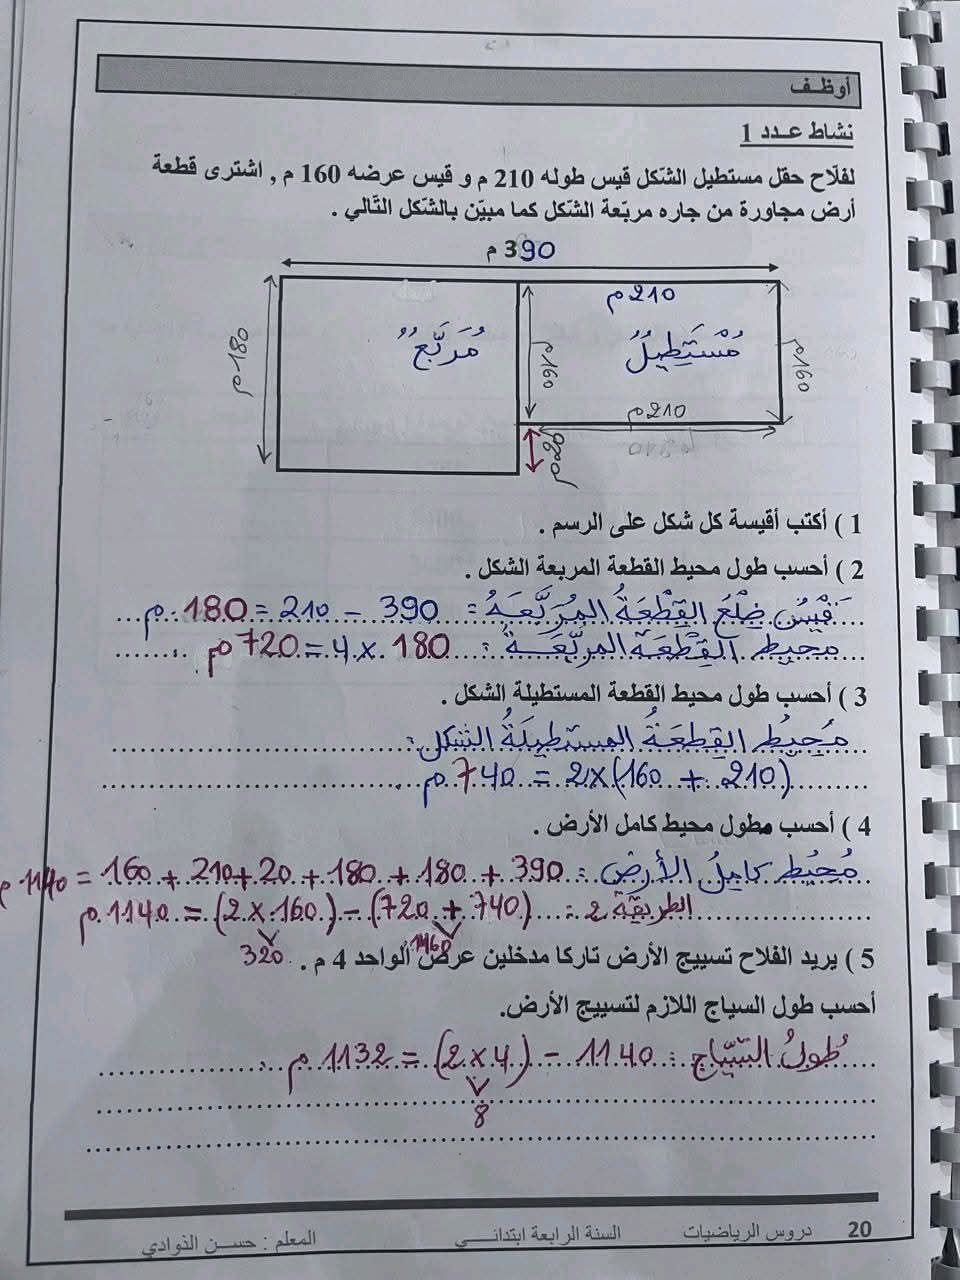 أوظـف
نشاط عـدد 1
لفلّاح حقل مستطيل الشّكل قيس طوله 210 م و قيس عرضه 160 م , اشترى قطعة
أرض مجاورة من جاره مربّعة الشّكل كما مبيّن بالشّكل التّالي .
390 م
210 م
مُسْتَطِيلٌ
مُرَبَّعٌ
180 م
160 م
160 م
210 م
20 م
1 ) أكتب أقيسة كل شكل على الرسم .
2 ) أحسب طول محيط القطعة المربعة الشكل .
قَيْسُ ضِلْعِ القِطْعَةِ المُرَبَّعَةِ : 390 - 210 = 180 م
محيط القِطْعَة المربَّعَة : 180 × 4 = 720 م
3 ) أحسب طول محيط القطعة المستطيلة الشكل .
مُحِيطُ القِطعَةُ المستطيلَةُ الشكل :
(210 + 160) × 2 = 740 م
4 ) أحسب طول محيط كامل الأرض .
مُحِيط كامِلُ الأرضِ : 390 + 180 + 180 + 20 + 210 + 160 = 1140 م
الطريقة 2 : (740 + 720) - (160 × 2) = 1140 م
1460 320
5 ) يريد الفلاح تسييج الأرض تاركا مدخلين عرض الواحد 4 م .
أحسب طول السياج اللازم لتسييج الأرض.
طُولُ السّيّاج : 1140 - (4 × 2) = 1132 م
8
20 دروس الرياضيات السنة الرابعة ابتدائــي المعلم : حسـن الذوادي